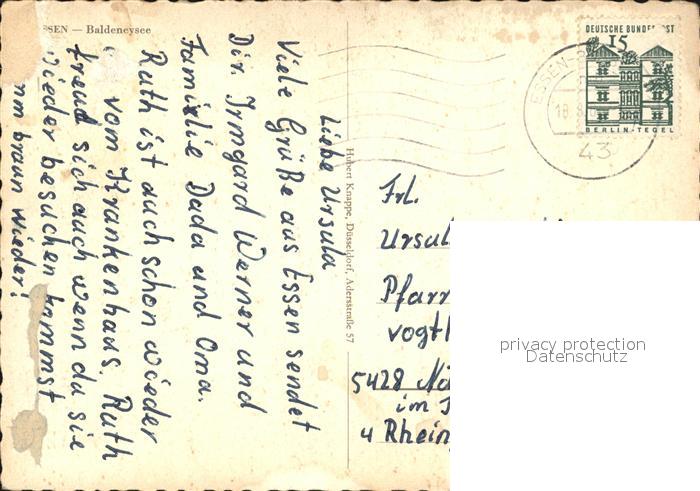 SSEN — Baldeneysee
DEUTSCHE BUNDESPOST
15
BERLIN-TEGEL
ESSEN-
18.
43
Hubert Knappe, Düsseldorf, Adersstraße 57
Liebe Ursula
Viele Grüße aus Essen sendet
Dir. Irmgard Werner und
Familie Dada und Oma.
Ruth ist auch schon wieder
vom Krankenhaus. Ruth
freud sich auch wenn du sie
wieder besuchen kommst
braun wieder!
Frl.
Ursul
Pfarr
vogt
5428 Na
im T
4 Rhein
privacy protection
Datenschutz